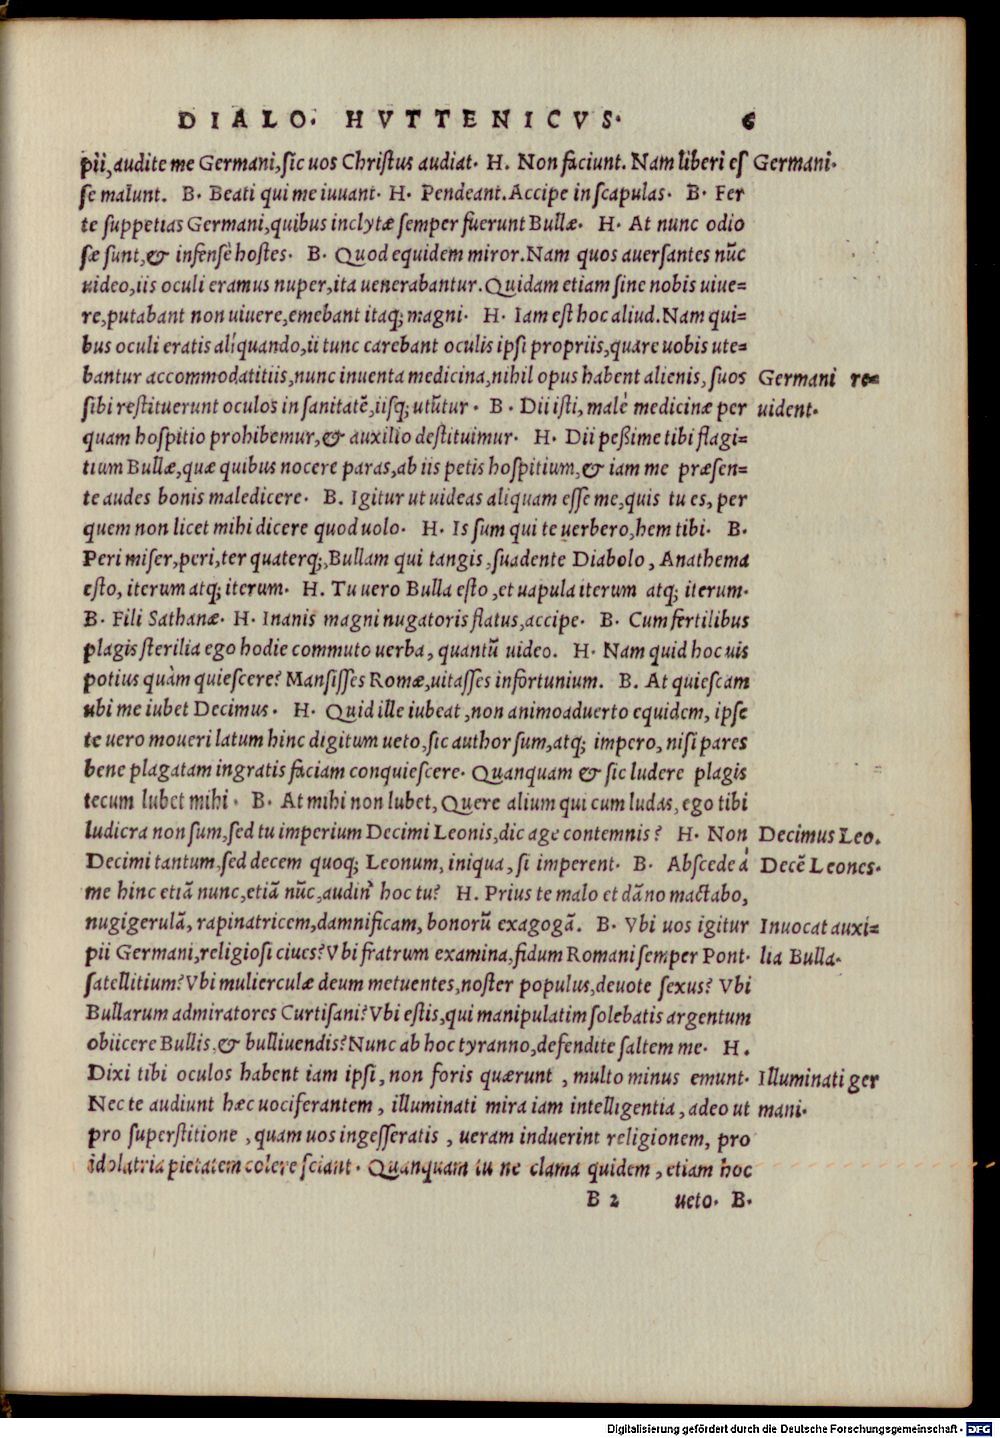 DIALO. HVTTENICVS. 6
pii, audite me Germani, sic uos Christus audiat. H. Non faciunt. Nam liberi es Germani.
se malunt. B. Beati qui me iuuant. H. Pendeant. Accipe in scapulas. B. Fer
te suppetias Germani, quibus inclytæ semper fuerunt Bullæ. H. At nunc odio
sæ sunt, & infensè hostes. B. Quod equidem miror. Nam quos auersantes nūc
uideo, iis oculi eramus nuper, ita uenerabantur. Quidam etiam sine nobis uiue=
re, putabant non uiuere, emebant itaq; magni. H. Iam est hoc aliud. Nam qui=
bus oculi eratis aliquando, ii tunc carebant oculis ipsi propriis, quare uobis ute=
bantur accommodatitiis, nunc inuenta medicina, nihil opus habent alienis, suos Germani re=
sibi restituerunt oculos in sanitatē, iisq; utūtur. B. Dii isti, malè medicinæ per uident.
quam hospitio prohibemur, & auxilio destituimur. H. Dii peßime tibi flagi=
tium Bullæ, quæ quibus nocere paras, ab iis petis hospitium, & iam me præsen=
te audes bonis maledicere. B. Igitur ut uideas aliquam esse me, quis tu es, per
quem non licet mihi dicere quod uolo. H. Is sum qui te uerbero, hem tibi. B.
Peri miser, peri, ter quaterq;, Bullam qui tangis, suadente Diabolo, Anathema
esto, iterum atq; iterum. H. Tu uero Bulla esto, et uapula iterum atq; iterum.
B. Fili Sathanæ. H. Inanis magni nugatoris flatus, accipe. B. Cum fertilibus
plagis sterilia ego hodie commuto uerba, quantū uideo. H. Nam quid hoc uis
potius quàm quiescere? Mansisses Romæ, uitasses infortunium. B. At quiescam
ubi me iubet Decimus. H. Quid ille iubeat, non animoaduerto equidem, ipse
te uero moueri latum hinc digitum ueto, sic author sum, atq; impero, nisi pares
bene plagatam ingratis faciam conquiescere. Quanquam & sic ludere plagis
tecum lubet mihi. B. At mihi non lubet, Quere alium qui cum ludas, ego tibi
ludicra non sum, sed tu imperium Decimi Leonis, dic age contemnis? H. Non Decimus Leo.
Decimi tantum, sed decem quoq; Leonum, iniqua, si imperent. B. Abscede à Decē Leones.
me hinc etiā nunc, etiā nūc, audin' hoc tu? H. Prius te malo et dāno mactabo,
nugigerulā, rapinatricem, damnificam, bonorū exagogā. B. Vbi uos igitur Inuocat auxi=
pii Germani, religiosi ciues? Vbi fratrum examina, fidum Romani semper Pont. lia Bulla.
satellitium? Vbi mulierculæ deum metuentes, noster populus, deuote sexus? Vbi
Bullarum admiratores Curtisani? Vbi estis, qui manipulatim solebatis argentum
obiicere Bullis, & bulliuendis? Nunc ab hoc tyranno, defendite saltem me. H.
Dixi tibi oculos habent iam ipsi, non foris quærunt, multo minus emunt. Illuminati ger
Nec te audiunt hæc uociferantem, illuminati mira iam intelligentia, adeo ut mani.
pro superstitione, quam uos ingesseratis, ueram induerint religionem, pro
idolatria pietatem colere sciant. Quanquam tu ne clama quidem, etiam hoc
B 2 ueto. B.
Digitalisierung gefördert durch die Deutsche Forschungsgemeinschaft - DFG